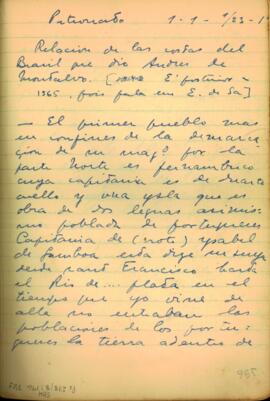 Patronato 1-1-1/23-1
Relacion de las cosas del
Brasil que dio Andres de
Montalvo. [ E' posterior a
1565, pois fala em E. de Sá]
— El primer pueblo mas
en confines de la demarca
cion de su mag.d por la
parte Norte es pernambuco
cuya capitania es de duarte
cuello y una ysla que es
obra de dos leguas asimis
mo poblada de portugueses
Capitania de (roto) ysabel
de Gamboa esta dize
desde sant Francisco hasta
el Rio de ... plata en el
tiempo que yo vine de
alla no entaban las
poblaciones de los por tu
gueses la tierra adentro de
955